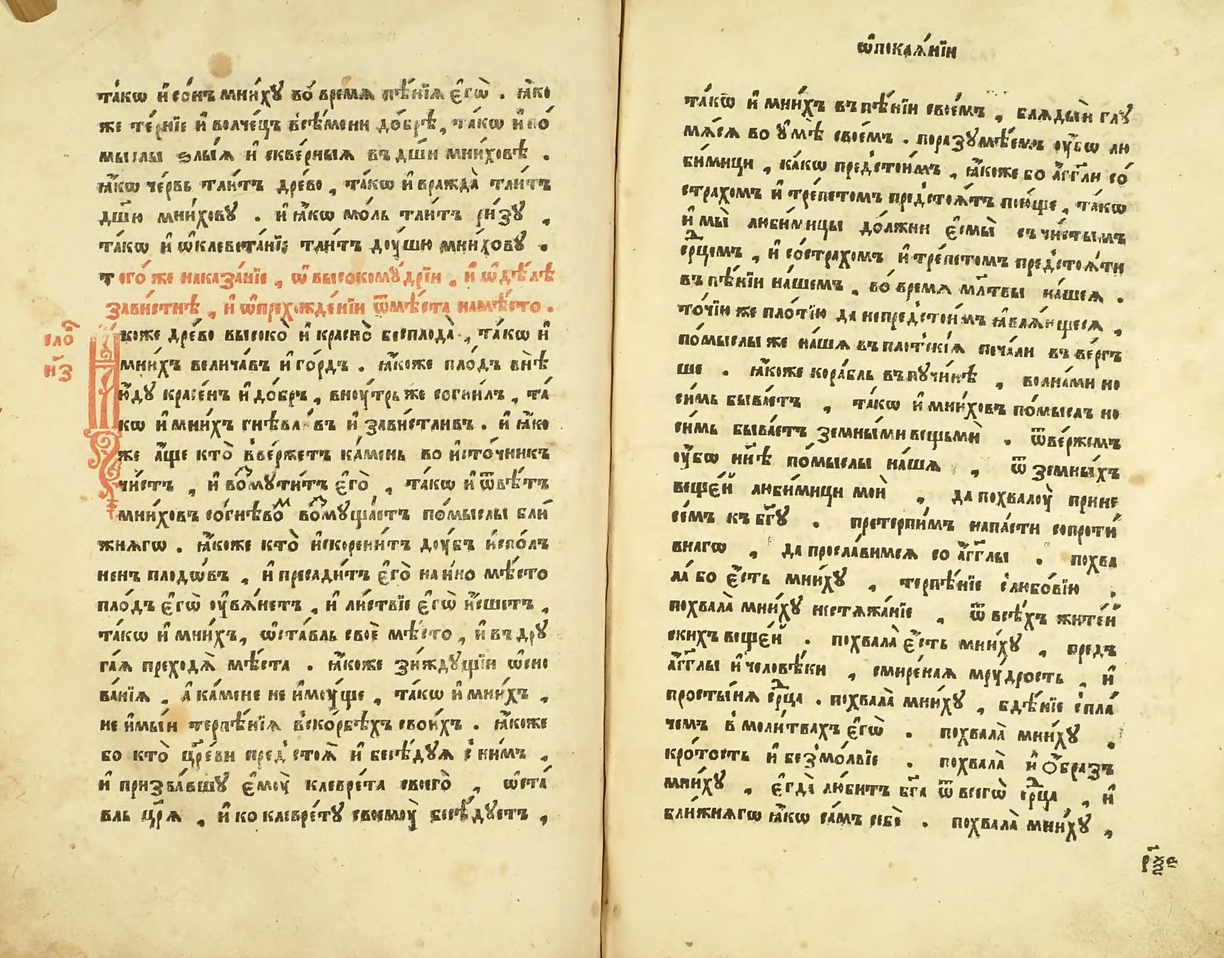 та́кѡ и҆ со́нъ мни́хꙋ во́ время пѣ́нїѧ є҆гѡ̀ . ꙗ҆́ко
же те́рнїе и҆ волче́цъ всѣ́мени до́брѣ, та́кѡ и҆ по́
мыслы ѕлы́ѧ и҆ скве́рныѧ въ дш҃и мни́ховѣ .
ꙗ҆́кѡ че́рвь тли́тъ дре́во , та́кѡ и҆ вражда̀ тли́тъ
дш҃ю мни́ховꙋ . и҆ ꙗ҆́кѡ мо́ль тли́тъ ри́зꙋ ,
та́кѡ и҆ ѡ҆клевета́нїе тли́тъ дꙋ́шю мни́ховꙋ .
того́ же наказа́нїе , ѡ҆ высокомꙋ́дрїи , и҆ ѡ҆ дѣ́лѣ
зави́стнѣ , и҆ ѡ҆ прехожде́нїи ѿ мѣ́ста на мѣ́сто .
сло҇
н҃з
Ꙗ҆́коже дре́во высоко̀ и҆ красно̀ бесплода̀ , та́кѡ и҆
мни́хъ велича́въ и҆ го́рдъ . ꙗ҆́коже пло́дъ внѣ̀
и҆́дꙋ кра́сенъ и҆ до́бръ , внꙋ́трь же согни́лъ , та́
кѡ и҆ мни́хъ гнѣвли́въ и҆ зави́стливъ . и҆ ꙗ҆́ко
же а҆́ще кто̀ вве́ржетъ ка́мень во и҆сто́чникъ
чи́стъ , и҆ возмꙋ́титъ є҆го̀ , та́кѡ и҆ ѿвѣ́тъ
мни́ховъ согнѣ́вомъ возмꙋща́етъ по́мыслы бли́
жнѧгѡ . ꙗ҆́коже кто̀ и҆скорени́тъ дꙋ́бъ и҆спо́л
ненъ плодѡ́въ , и҆ пресади́тъ є҆го̀ на и҆́но мѣ́сто
пло́дъ є҆гѡ̀ ᲂу҆вѧ́нетъ , и҆ ли́ствїе є҆гѡ̀ и҆́сшетъ ,
та́кѡ и҆ мни́хъ, ѡ҆ста́вль своѐ мѣ́сто , и҆ въ дрꙋ
га́ѧ преходѧ̀ мѣ́ста . ꙗ҆́коже зи́ждꙋщїи ѡ҆сно
ва́нїѧ , а҆ ка́мене не и҆мꙋ́ще , та́кѡ и҆ мни́хъ ,
не и҆мы́и терпѣ́нїѧ вско́рбѣхъ свои́хъ . ꙗ҆́коже
бо кто̀ цр҃е́ви пред̾стоѧ̀ и҆ бесѣ́дꙋѧ с ни́мъ ,
и҆ призва́вшꙋ є҆мꙋ̀ клевре́та своего̀ , ѡ҆ста́
вль цр҃ѧ̀ , и҆ ко клевре́тꙋ своемꙋ̀ бесѣ́дꙋетъ ,
ѡ҆ покаѧ́нїи
та́кѡ и҆ мни́хъ въ пѣ́нїи свое́мъ , блꙋдѧ́и глꙋ
мѧ́сѧ во ᲂу҆мѣ̀ свое́мъ . поразꙋмѣ́емъ ᲂу҆́бѡ лю
би́мици , ка́кѡ пред̾стои́мъ , ꙗ҆́коже бо а҆́гг҃ли со́
страхомъ и҆ тре́петомъ пред̾стоѧ́тъ пою́ще , та́кѡ
и҆ мы̀ люби́мицы до́лжни є҆смы̀ съ чи́стымъ
се́рдцемъ , и҆ со стра́хомъ и҆ тре́петомъ пред̾стоѧ́ти
въ пѣ́нїи на́шемъ , во́ время мл҃твы на́шеѧ .
то́чїю же пло́тїю да не пред̾стои́мъ ꙗ҆влѧ́ющесѧ ,
по́мыслы же на́шѧ въ плотскі́ѧ печа́ли въве́ргъ
ше . ꙗ҆́коже кора́бль въ пꙋчи́нѣ , волна́ми но
си́мь быва́етъ , та́кѡ и҆ мни́ховъ по́мыслъ но
си́мь быва́етъ земны́ми вещьмѝ . ѿве́ржемъ
ᲂу҆́бѡ нн҃ѣ по́мыслы на́шѧ , ѿ земны́хъ
веще́й люби́мици моѝ , да похвалꙋ̀ прине
се́мъ къ бг҃ꙋ . претерпи́мъ напа́сти сопроти́
внагѡ , да просла́вимсѧ со а҆́гг҃лы . похва
ла̀ бо є҆́сть мни́хꙋ , терпѣ́нїе с любо́вїю ,
похвала̀ мни́хꙋ нестѧжа́нїе , ѿ всѣ́хъ жите́й
скихъ веще́й . похвала̀ є҆́сть мни́хꙋ , пре́дъ
а҆́гг҃лы и҆ человѣ́ки , смире́наѧ мꙋ́дрость , и҆
просты́нѧ се́рдца . похвала̀ мни́хꙋ , бдѣ́нїе с пла́
чемъ в моли́твахъ є҆гѡ̀ . похвала̀ мни́хꙋ ,
кро́тость и҆ безмо́лвїе . похвала̀ и҆ ѻ҆́бразъ
мни́хꙋ , є҆гда̀ лю́битъ бг҃а ѿ всегѡ̀ се́рдца , и҆
бли́жнѧгѡ ꙗ҆́кѡ са́мъ себѐ . похвала̀ мни́хꙋ ,